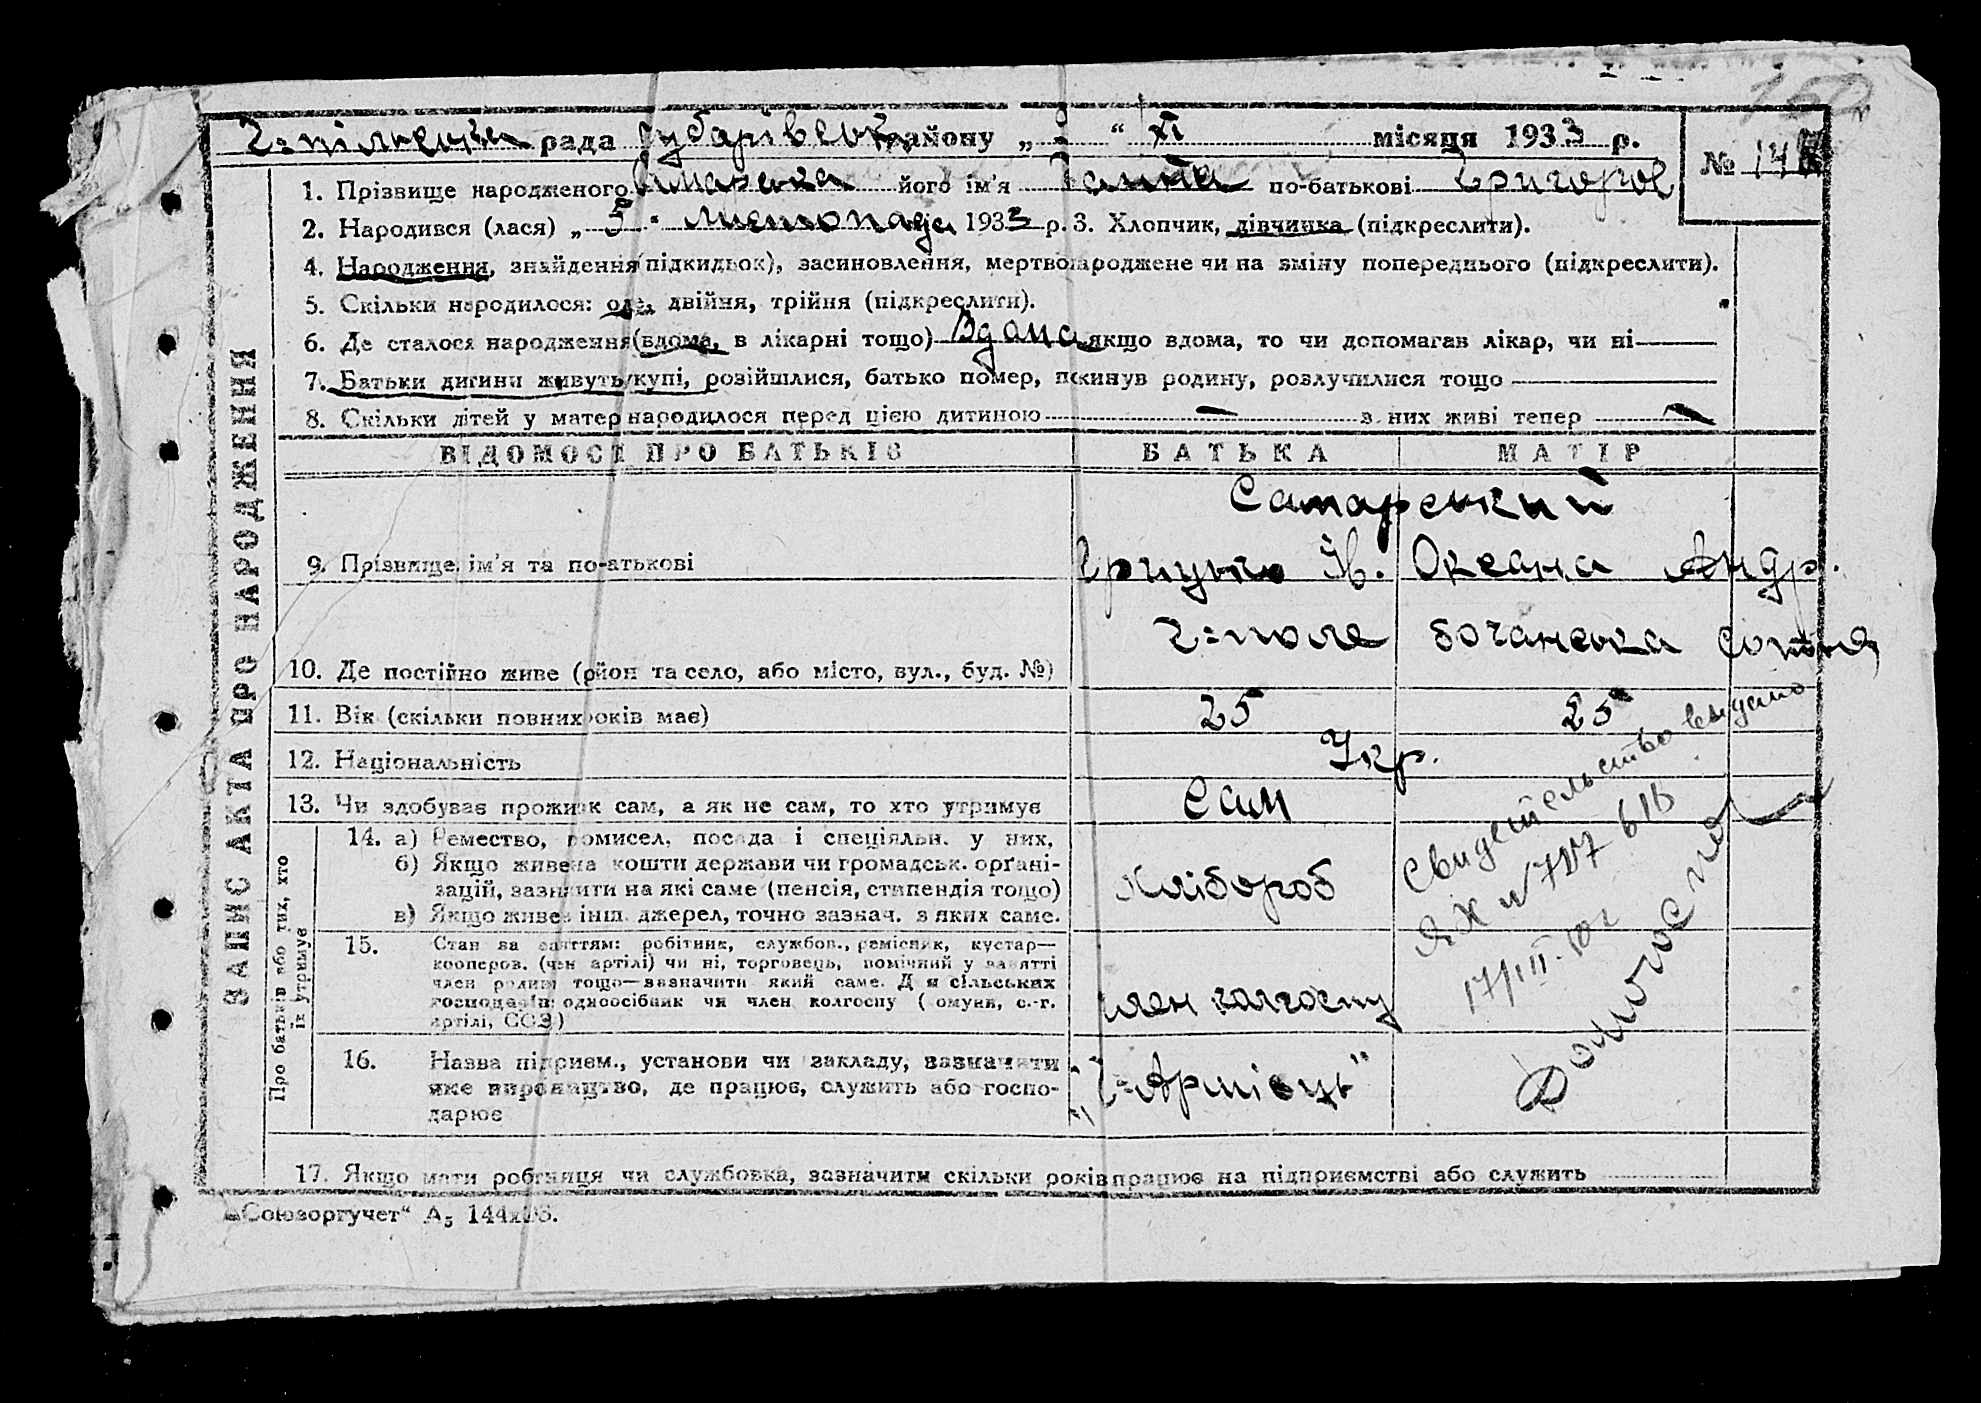 160
Г=пільська рада Губарівськ району „ “ XI місяця 1933 р.
№ 14
1. Прізвище народженого Самарська його ім'я Ганна по-батькові Григоров
2. Народився (лася) „ 5 “ листопада 1933 р. 3. Хлопчик, дівчинка (підкреслити).
4. Народження, знайдення (підкидьок), засиновлення, мертвонароджене чи на зміну попереднього (підкреслити).
5. Скільки народилося: одн, двійня, трійня (підкреслити).
6. Де сталося народження (вдома, в лікарні тощо) Вдома якщо вдома, то чи допомагав лікар, чи ні
7. Батьки дитини живуть укупі, розійшлися, батько помер, покинув родину, розлучилися тощо
8. Скільки дітей у матер народилося перед цією дитиною — з них живі тепер —
ЗАПИС АКТА ПРО НАРОДЖЕННЯ
ВІДОМОСТІ ПРО БАТЬКІВ БАТЬКА МАТІР
Самарський
9. Прізвище, ім'я та по-батькові Грицько Ів. Оксана Андр.
Г=поле
10. Де постійно живе (район та село, або місто, вул., буд. №)
11. Вік (скільки повних років має) 25 25
12. Національність Укр.
13. Чи здобуває прожиток сам, а як не сам, то хто утримує Сам
Про батьків або тих, хто їх утримує
14. а) Ремество, промисел, посада і спеціяльн. у них,
б) Якщо живе на кошти держави чи громадськ. орґані-
зацій, зазначити на які саме (пенсія, стипендія тощо)
в) Якщо живе з інш. джерел, точно зазнач. з яких саме.
Хлібороб
15. Стан за заняттям: робітник, службов., ремісник, кустар—
кооперов. (член артілі) чи ні, торговець, помічний у занятті
член родини тощо—зазначити який саме. Для сільських
господарів: одноосібник чи член колгоспу (комуни, с.-г.
артілі, СОЗ)
член колгоспу
16. Назва підприєм., установи чи закладу, зазначити
яке виробництво, де працює, служить або госпо-
дарює
Свидетельство выдано
ЯЖ №
17/III-50 г
17. Якщо мати робітниця чи службовка, зазначити скільки років працює на підприємстві або служить
„Союзоргучет“ А5 144х